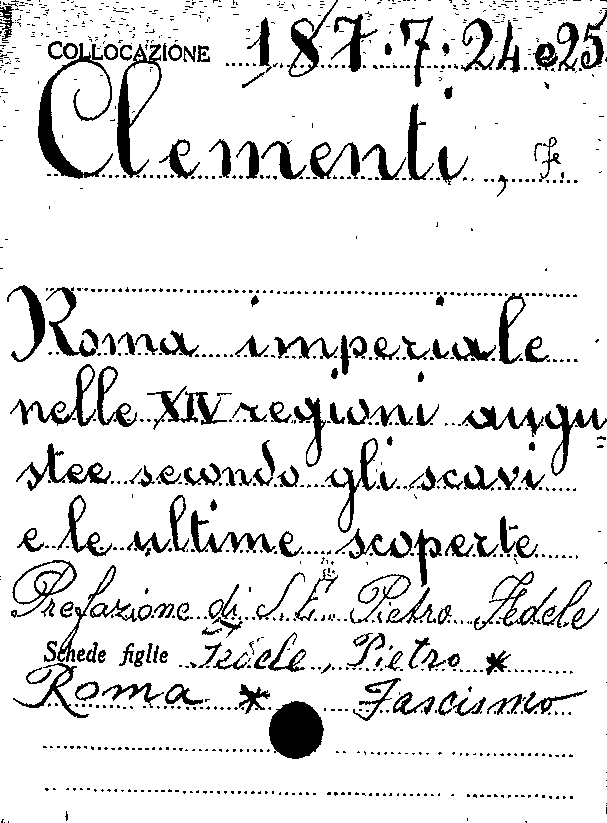 COLLOCAZIONE 187.7.24 e 25
Clementi, Fe.
Roma imperiale
nelle XIV regioni augu=
stee secondo gli scavi
e le ultime scoperte
Prefazione di S.E. Pietro Fedele
Schede figlie Fedele, Pietro *
Roma * Fascismo